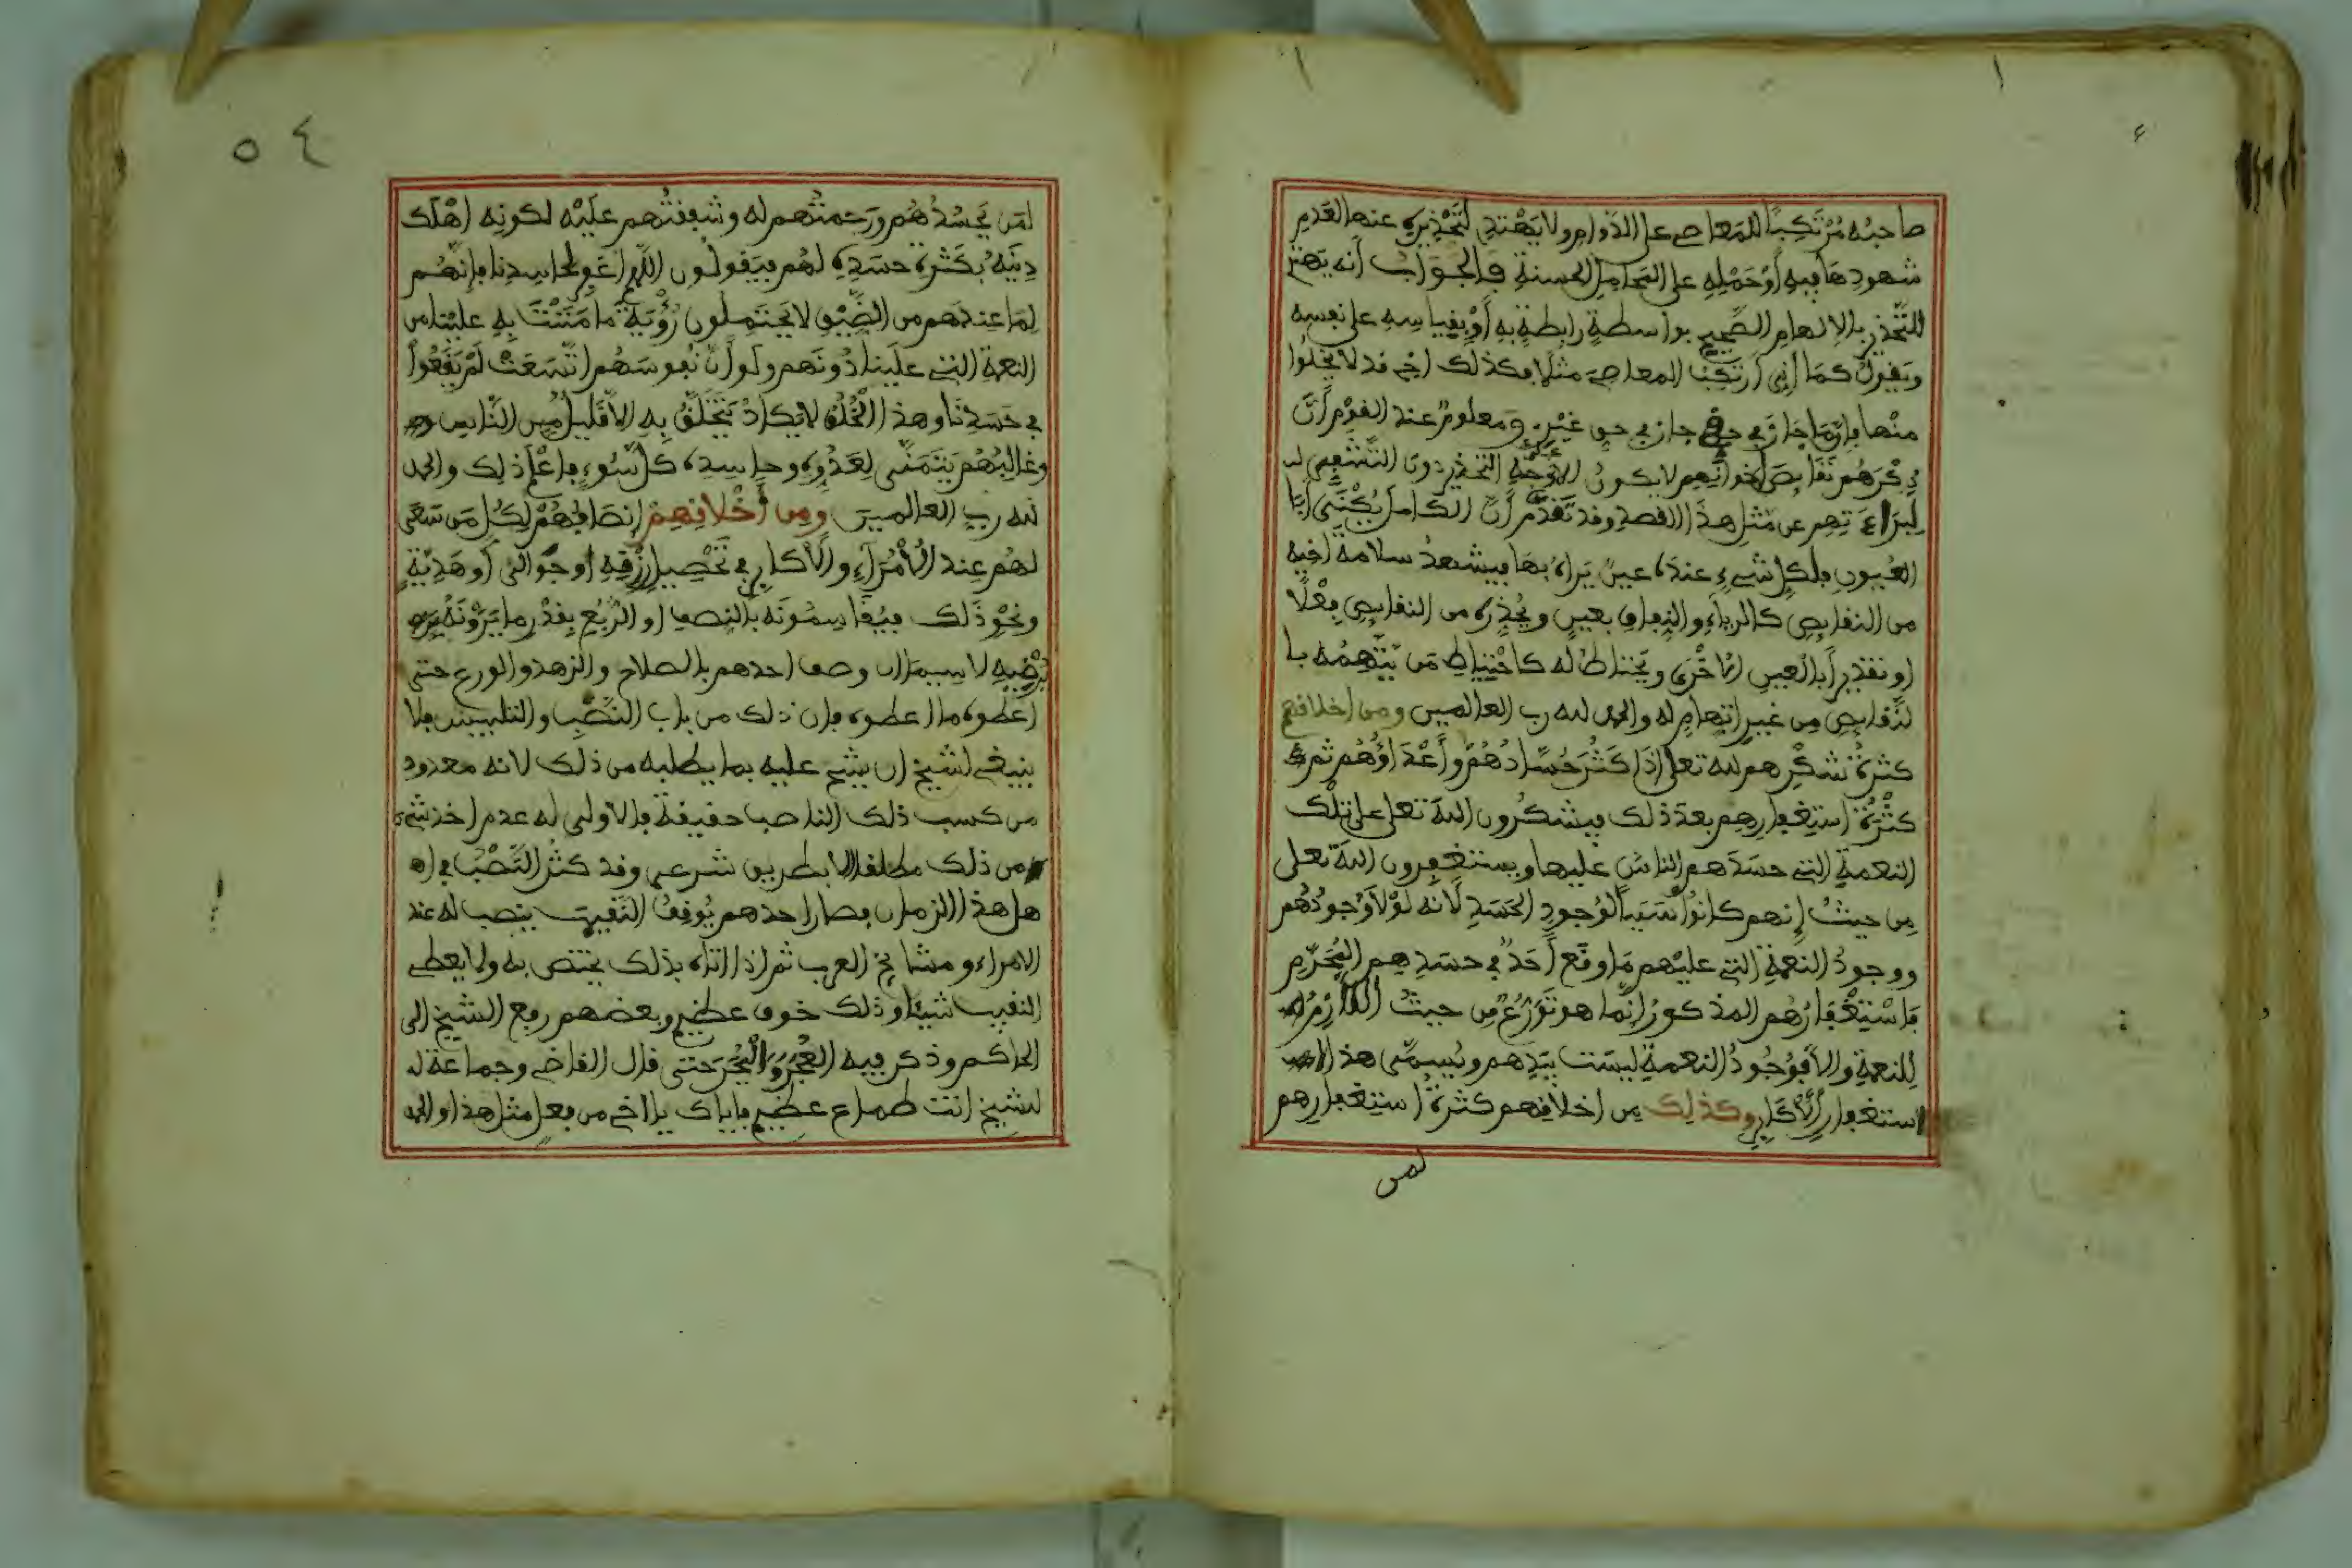 صاحبُه مُرْتَكِبًا للمَعاصي على الدَّوامِ ولا يَهْتدي لتَحْذيرِه عنها لعَدمِ
شهودِها فيه أوْ حَمْلِهِ على المحامِلِ الحسنةِ فالجوَابُ أنه يَهتم
للتَّحذيرِ بالإلهامِ الصَّحيحِ بواسطةٍ رابطةٍ به أوْ بقياسِهِ على نفسِه
ويَقولُ كمَا أنِّي أرْتَكِبُ المعاصيَ مثلًا فكذلك أخي قد لا يَخْلُوا
منْها فإنَّ مَا جَازَ في حقِّي جاز في حق غيْرِي ومعلومٌ عند القَوْمِ أنَّ
ذِكْرَهُم نَقَايِصَ إخوانِهم لا يكونُ إلا لوَجْهِ التحذيرِ دونَ التَّشَفِّي
لِبَرَاءَتِهِم عن مثلِ هذا القصدِ وقد تَقَدَّم أنَّ الكاملَ يُكْنَى أبَا
العُيونِ فلكلِّ شيءٍ عندَه عينٌ يَراهُ بهَا فيشهدُ سلامةَ أخيه
من النقايصِ كالرياءِ والنِّفاقِ بعينٍ ويُحَذِّرُه من النقايصِ فِعْلًا
او تقديرًا بالعينِ الاخْرَى ويَحْتاطُ له كاحْتِيَاطِ مَن يَتَّهِمُهُ با
لنَّقايصِ مِن غيرِ اتهامٍ له والحمد لله رب العالمين ومن اخلاقهم
كثرةُ شكْرِهم لله تعلى إذَا كَثُرَ حُسَّادُهُمْ وأَعْدَاؤُهُم ثم
كثْرَةُ استِغفارِهِم بعدَ ذلك فيشكُرون اللهَ تعلى على تلْك
النعمةِ التي حسَدَهم الناسُ عليها ويستغفِرون اللهَ تعلى
مِن حيثُ إنهم كانُوا سَبَبًا لوُجودِ الحَسَدِ لأنه لوْلاَ وُجودُهُم
ووجودُ النعمةِ التي عليْهم مَا وقَع أحَدٌ في حسَدِهِم المُحَرَّمِ
فَاسْتِغْفَارُهُم المذكورُ إنَّما هو تَوَرُّعٌ مِن حيثُ
لِلنعمةِ وإلاَّ فوُجُودُ النعمةِ ليسَت بيَدِهم ويُسمَّى هذا
استغفارَ الأكَابِرِ وكذلِك مِن اخلاقِهِم كثرةُ استِغفارِهم
لمن
٥٤
لمَن يَحسُدُهُم ورَحمتُهم له وشفقتُهم علَيْه لكونِه اهْلَك
دِينَهُ بكَثْرةِ حسَدِه لهُم فيَقولُون اللَّهم اغفِر لحاسِدِنا فإنهُم
لِمَا عِندَهم من الضِّيقِ لا يَحْتَمِلُون رُؤْيةَ مَا مَنَنْتَ به عليْنا من
النعمةِ التي علَينا دُونَهم ولو أنَّ نُفوسَهُم اتَّسَعَتْ لمْ يَقَعُوا
في حَسَدِنَا وهذا الْخُلُقُ لا يَكادُ يَتَخَلَّقُ بِهِ إلاَّ قليلٌ مِّن النَّاسِ
وغالِبُهُمْ يَتَمَنَّى لِعَدُوِّه وحاسِدِه كلَّ سُوءٍ فاعْلَم ذلِك والحمد
لله ربِ العالمين ومِن أخْلاقِهِمْ إنصَافُهُمْ لِكُلِّ مَن سَعَى
لهُم عند الأُمَرَاءِ والأكابِرِ في تَحْصِيلِ رِزْقِهِ او جَوَالي أو هَديَّةٍ
ونحْوِ ذَلك فيُقاسِمُونَه بالنِصفِ او الرُّبُعِ بقدْرِ ما يَرَوْنَهُ
يُرْضيهِ لا سيما إن وصف احدهم بالصلاح والزهد والورع حتى
اعطوه ما اعطوه فإن ذلك من باب النَّصْبِ والتلبيس فلا
ينبغي لشيخ ان يشح عليه بما يطلبه من ذلك لانه معدود
من كسب ذلك الناصب حقيقةً فالأولى له عدم اخذ شيء
من ذلك مطلقا إلا بطريق شرعي وقد كثُر النَّصْبُ في ا
هل هذا الزمان فصار احدهم يُوقِفُ النقيبَ ينصب له عند
الامراء ومشايخ العرب ثم إذا اتاه بذلك يختص به ولا يعطي
النقيب شيئا وذلك خوف عظيم وبعضهم رفع الشيخَ الى
الحاكم وذكر فيه العُجَرَ وَالْبُجَرَ حتى قال القاضي وجماعة له
لشيخ انت طماع عظيم فاياك يا اخي من فعل مثل هذا والحمد